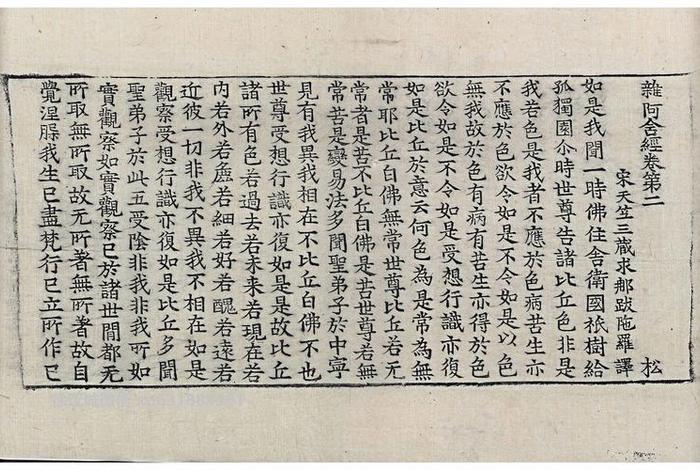 雜阿含經卷第二　松
宋天竺三藏求那跋陁羅譯
如是我聞一時佛住舍衛國祇樹給
孤獨園尒時世尊告諸比丘色非是
我若色是我者不應於色病苦生亦
不應於色欲令如是不令如是以色
無我故於色有病有苦生亦得於色
欲令如是不令如是受想行識亦復
如是比丘於意云何色為是常為無
常耶比丘白佛無常世尊比丘若无
常者是苦不比丘白佛是苦世尊若無
常苦是變易法多聞聖弟子於中寧
見有我異我相在不比丘白佛不也
世尊受想行識亦復如是是故比丘
諸所有色若過去若未來若現在若
內若外若麁若細若好若醜若遠若
近彼一切非我不異我不相在如是
觀察受想行識亦復如是比丘多聞
聖弟子於此五受陰非我非我所如
實觀察如實觀察已於諸世間都无
所取無所取故无所著無所著故自
覺涅槃我生已盡梵行已立所作已